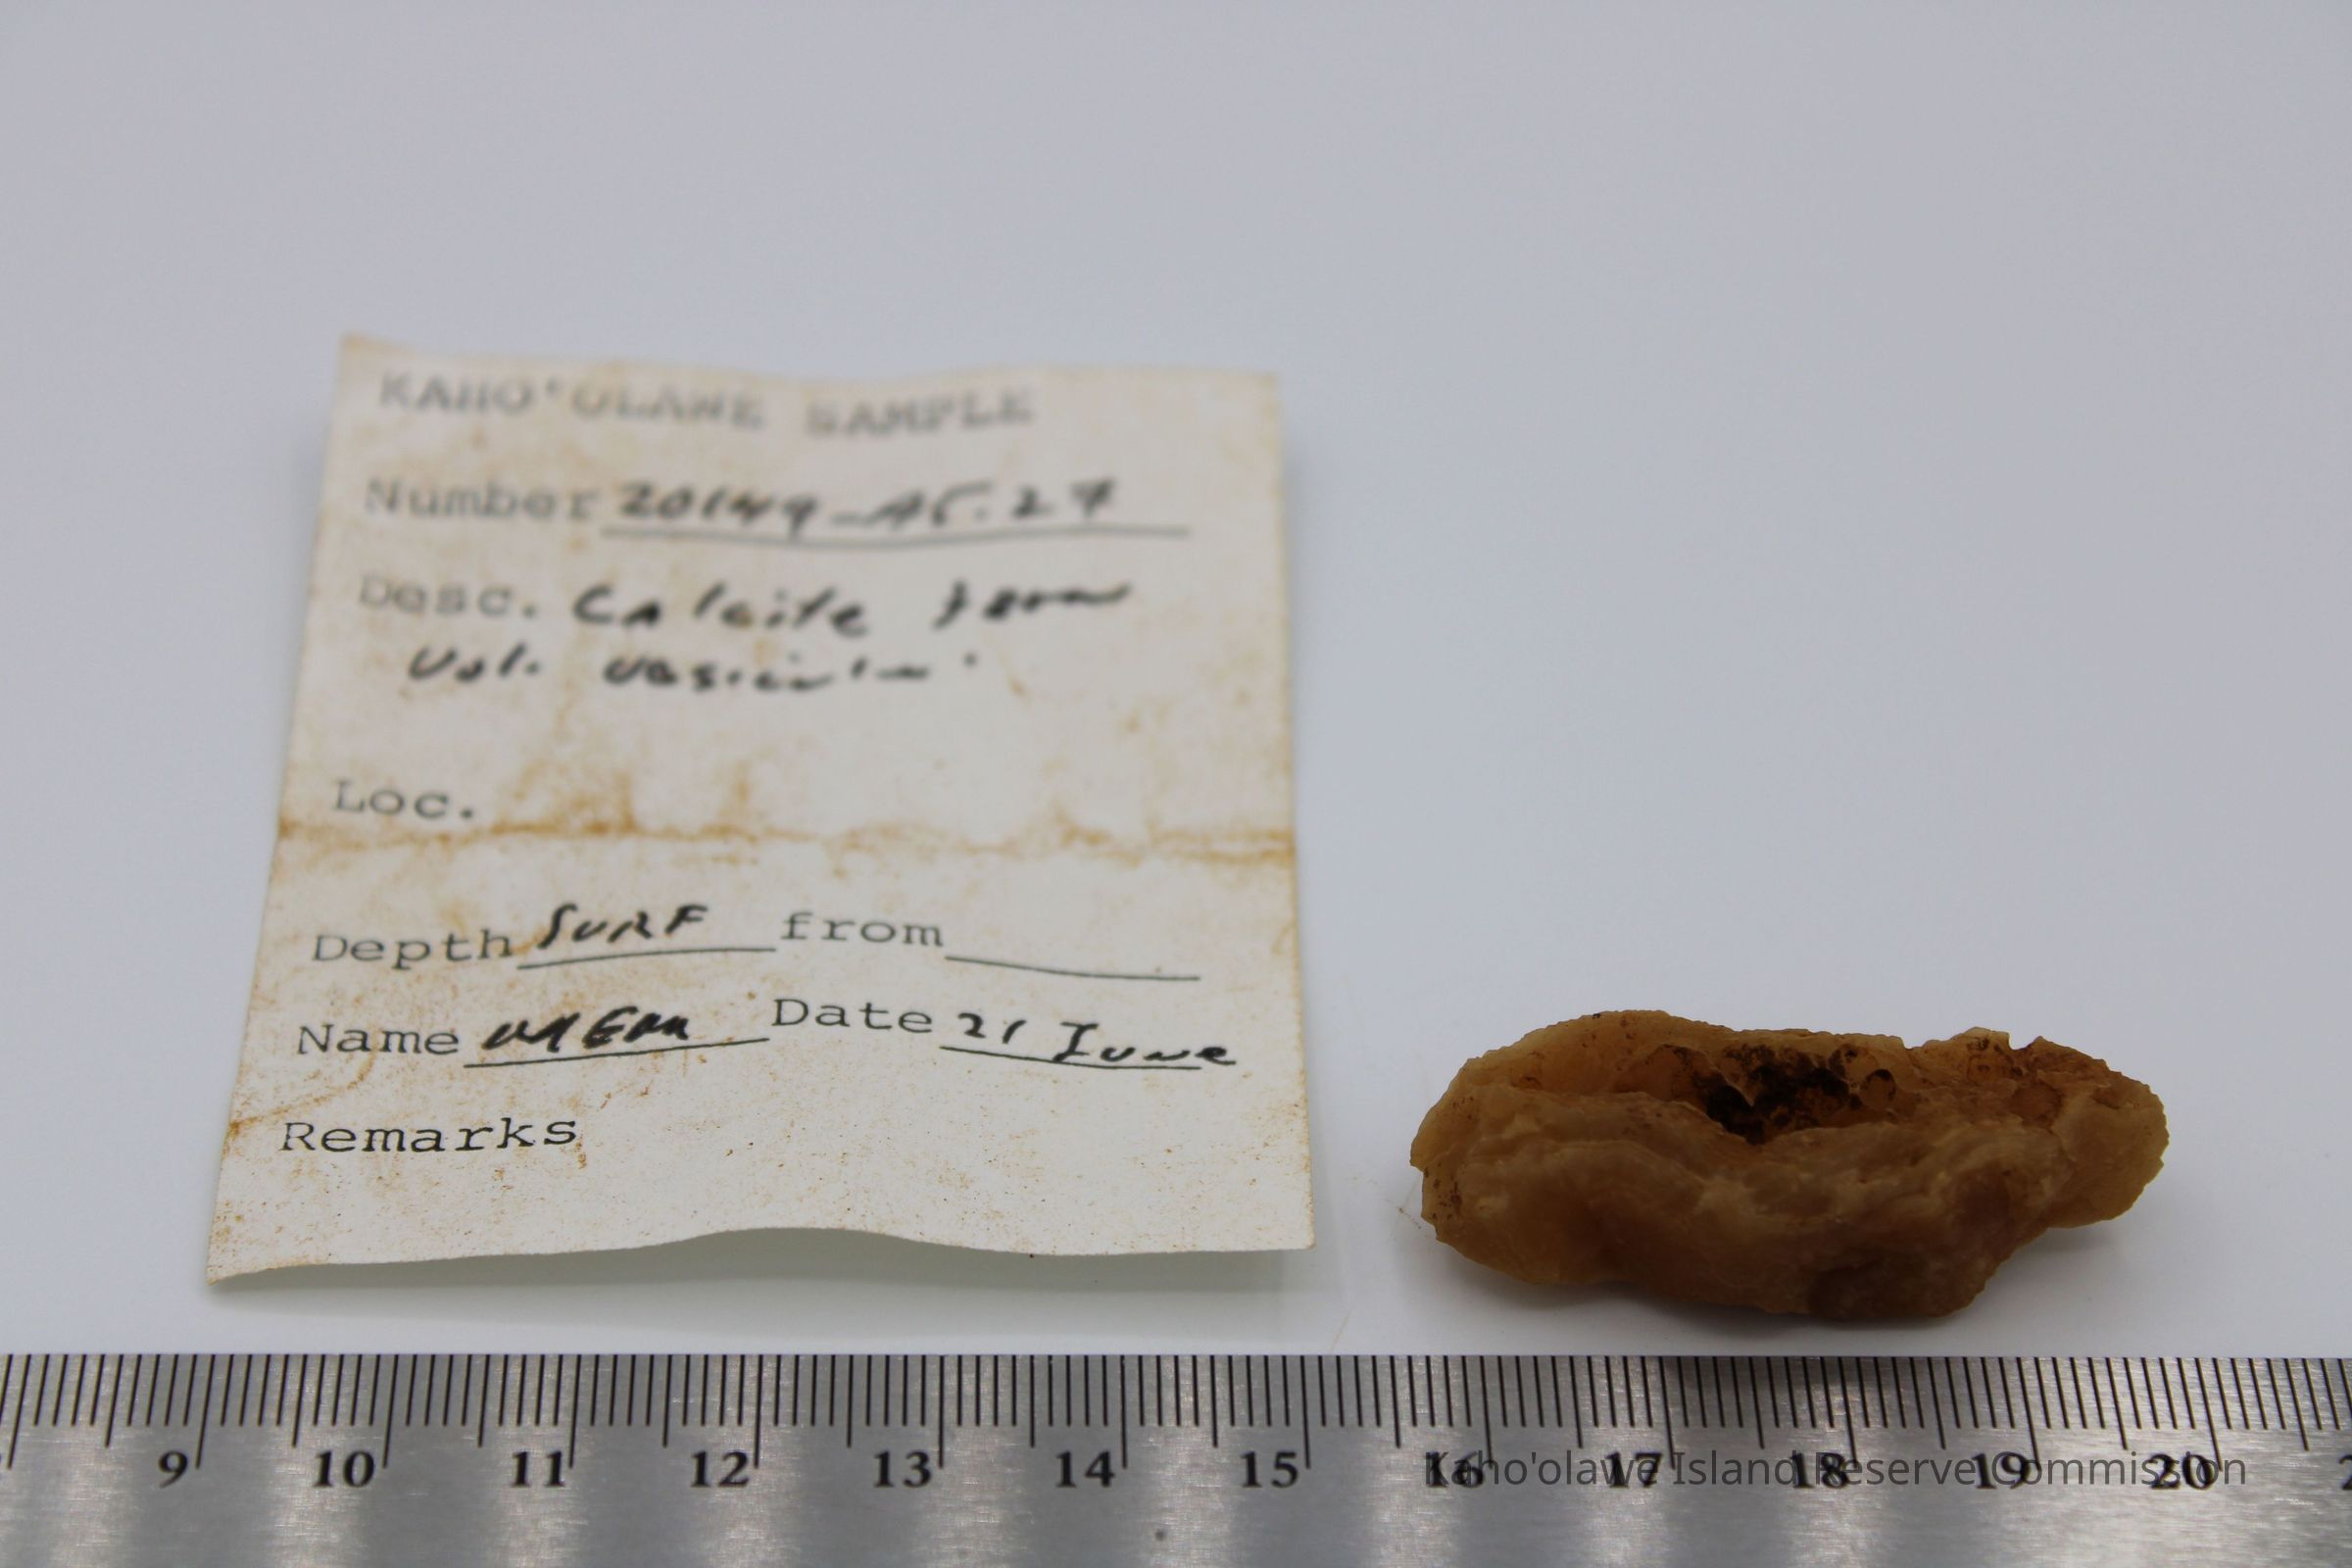 KAHO'OLAWE SAMPLE
Number 20149-AF.27
Desc. Calcite from
Vol. vesicle.
Loc.
Depth SURF from
Name MEM Date 21 June
Remarks
9 10 11 12 13 14 15 16 17 18 19 20
Kaho'olawe Island Reserve Commission